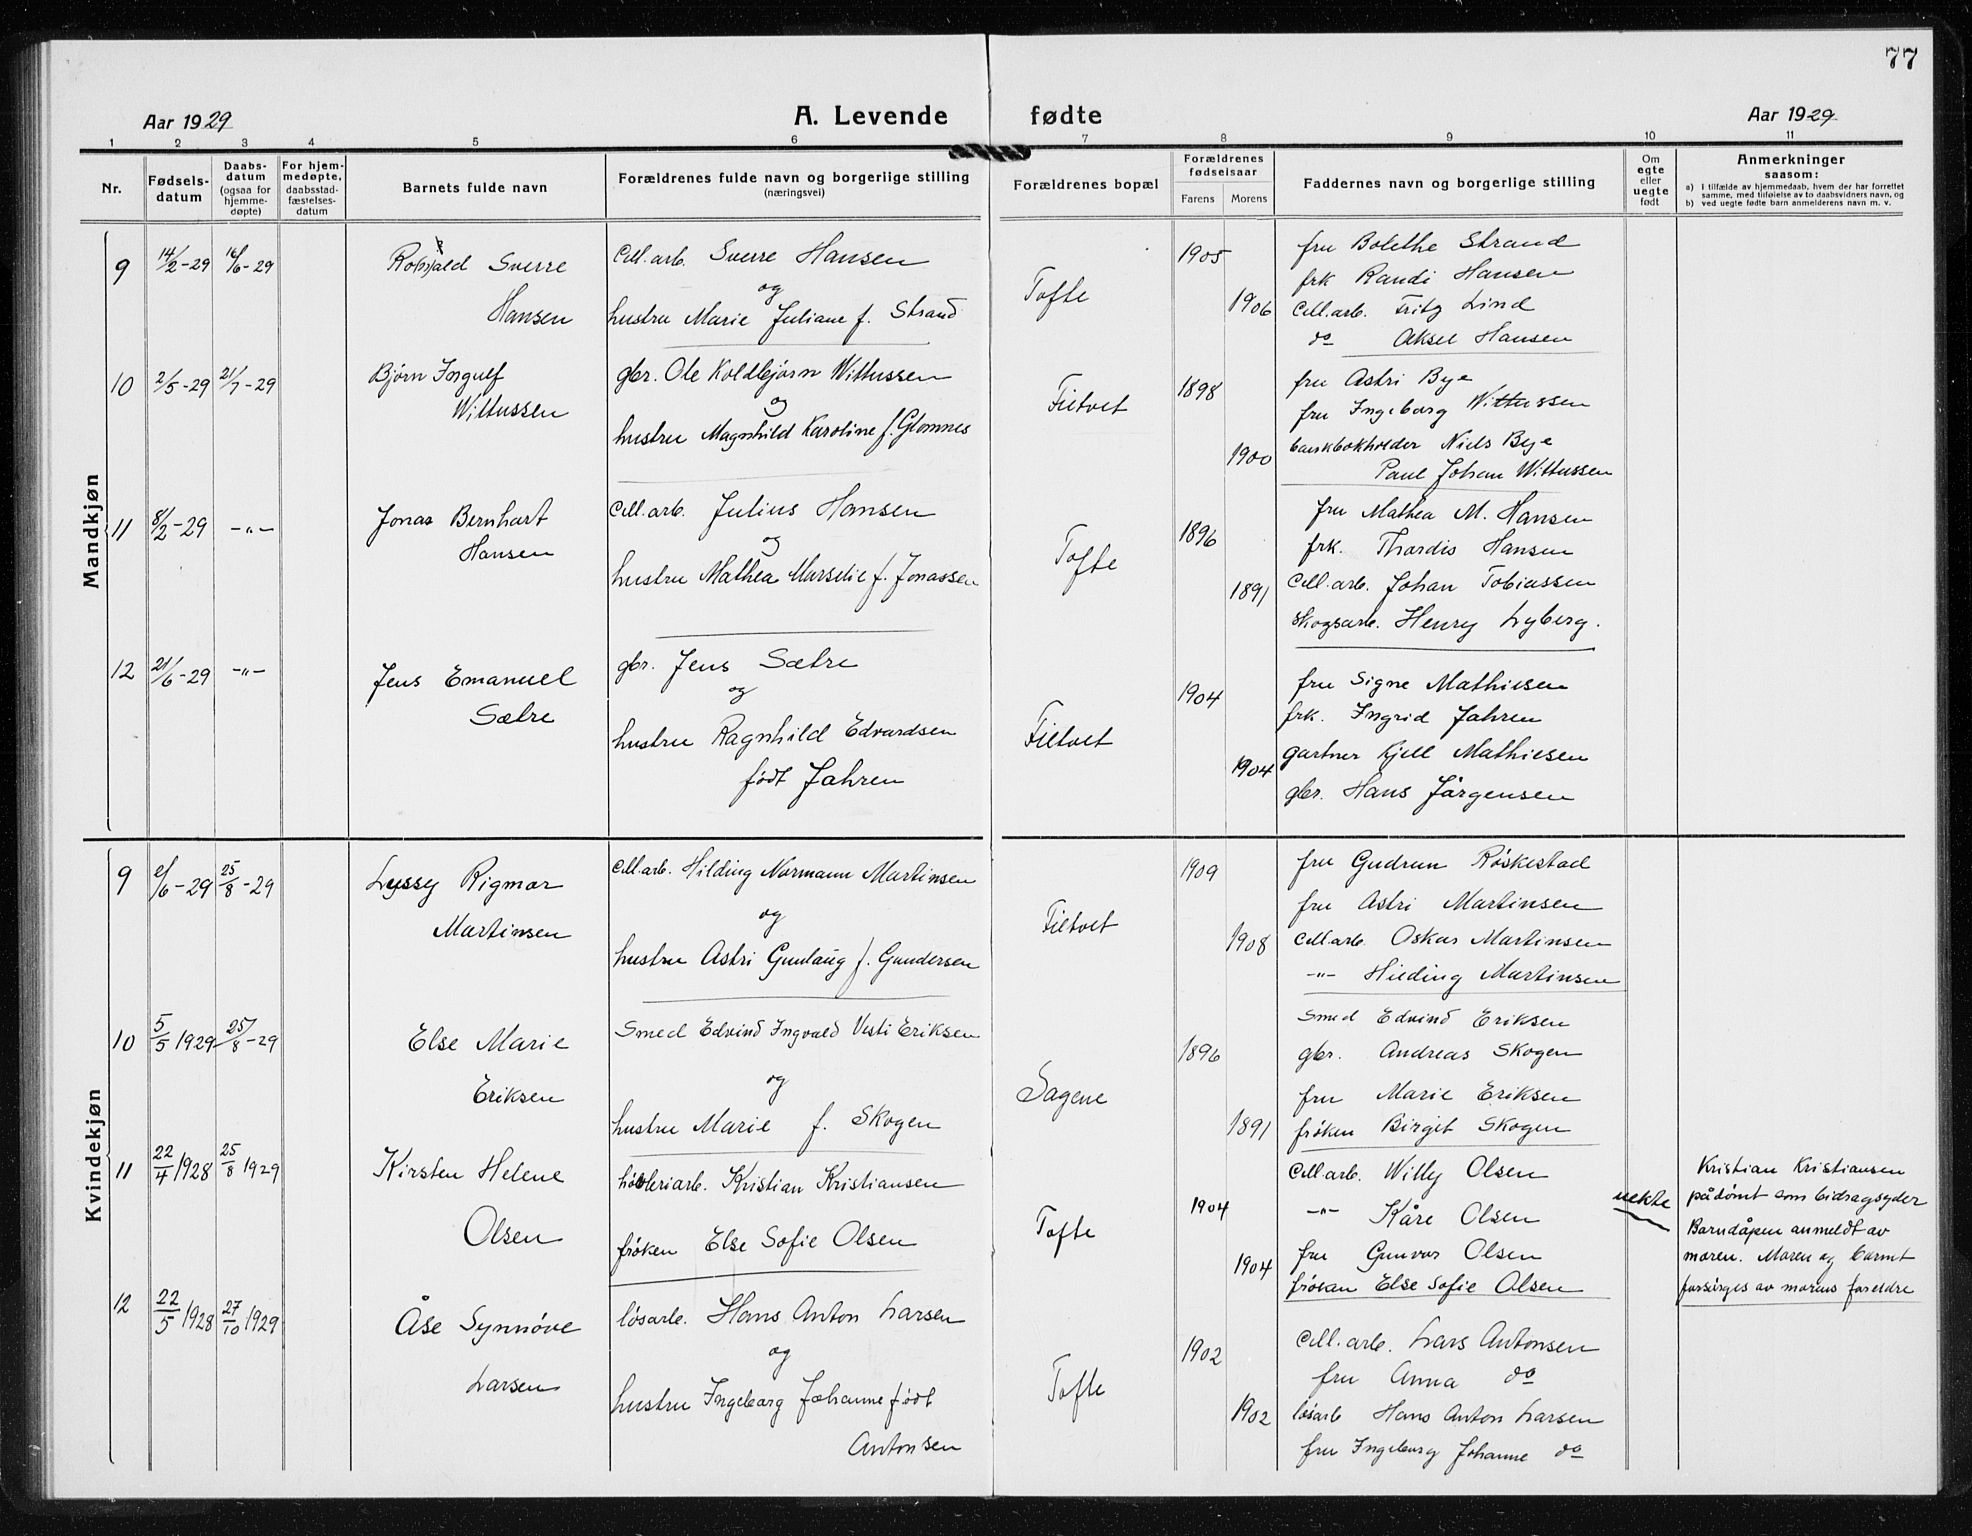 77
Aar 1929
A. Levende fødte
Aar 1929
1 2 3 4 5 6 7 8 9 10 11
Nr.
Fødsels-
datum
Daabs-
datum
(ogsaa for
hjemme-
døpte)
For hjem-
medøpte,
daabsstad-
fæstelses-
datum
Barnets fulde navn
Forældrenes fulde navn og borgerlige stilling
(næringsvei)
Forældrenes bopæl
Forældrenes
fødselsaar
Farens Morens
Faddernes navn og borgerlige stilling
Om
egte
eller
uegte
født
Anmerkninger
saasom:
a) i tilfælde av hjemmedaab, hvem der har forrettet
samme, med tilføielse av to daabsvidners navn, og
b) ved uegte fødte barn anmelderens navn m. v.
Mandkjøn
9
14/2-29
16/6-29
Sverre
Hansen
Cell.arb. Sverre Hansen
og
hustru Marie Juliane f. Strand
Tofte
1905
1906
fru Bolethe Strand
frk Randi Hansen
Cell.arb. Fritz Lind
do Aksel Hansen
10
2/5-29
21/7-29
Bjørn Ingulf
Wittussen
gbr. Ole Koldbjørn Wittussen
og
hustru Magnhild Karoline f. Glomnes
Filtvet
1898
1900
fru Astri Bye
fru Ingeborg Wittussen
bankbokholder Niels Bye
Paul Johan Wittussen
11
8/2-29
-"-
Jonas Bernhart
Hansen
Cell.arb. Julius Hansen
og
hustru Mathea Marselie f. Jonassen
Tofte
1896
1891
fru Mathea M. Hansen
frk. Thordis Hansen
Cell.arb. Johan Tobiassen
skogsarb. Henry Lyberg.
12
21/6-29
-"-
Jens Emanuel
Sætre
gbr. Jens Sætre
og
hustru Ragnhild Edvardsen
født Jahren
Filtvet
1904
1904
fru Signe Mathisen
frk. Ingrid Jahren
gartner Kjell Mathiesen
gbr. Hans Jørgensen
Kvindekjøn
9
/6-29
25/8-29
Lyssy Rigmor
Martinsen
Cell.arb. Hilding Normann Martinsen
og
hustru Astri Gunlaug f. Gundersen
Filtvet
1909
1908
fru Gudrun Røskestad
fru Astri Martinsen
Cell.arb. Oskar Martinsen
-"- Hilding Martinsen
10
5/5 1929
25/8-29
Else Marie
Eriksen
Smed Edvind Ingvald Vesti Eriksen
og
hustru Marie f. Skogen
Sagene
1896
1891
Smed Edvind Eriksen
gbr. Andreas Skogen
fru Marie Eriksen
frøken Birgit Skogen
11
22/4 1928
25/8 1929
Kirsten Helene
Olsen
høvleriarb. Kristian Kristiansen
frøken Else Sofie Olsen
Tofte
1904
1904
Cell.arb. Willy Olsen
-"- Kåre Olsen
fru Gunvor Olsen
frøken Else Sofie Olsen
uekte
Kristian Kristiansen
pådømt som bidragsyder
Barndåpen anmeldt av
moren. Moren og barnet
forsørges av morens foreldre
12
22/5 1928
27/10 1929
Åse Synnøve
Larsen
løsarb. Hans Anton Larsen
og
hustru Ingeborg Johanne født
Antonsen
Tofte
1902
1902
Cell.arb. Lars Antonsen
fru Anna do
løsarb Hans Anton Larsen
fru Ingeborg Johanne do